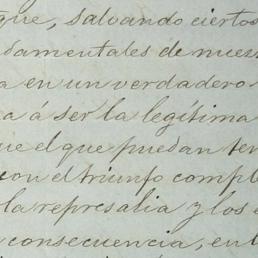 que, salvando ciertos
damentales de nues
a en un verdadero
a á ser la legítima
ue el que puedan ten
con el triunfo compl
la represalia y los
consecuencia, en